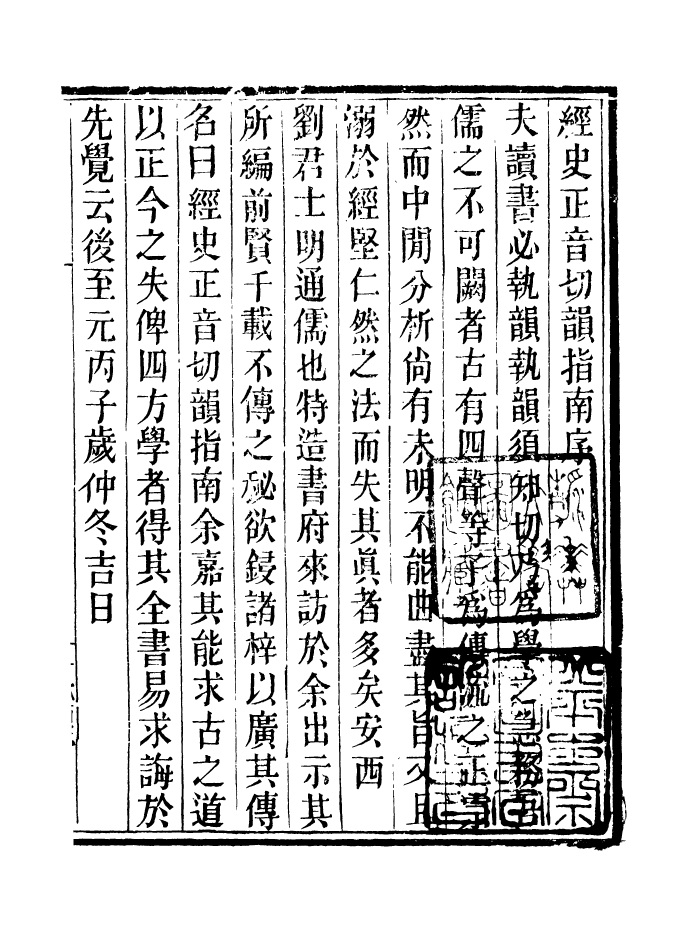 經史正音切韻指南序
夫讀書必執韻執韻須知切乃為學之急務吾
儒之不可闕者古有四聲等子爲傳流之正宗
然而中閒分析尙有未明不能曲盡其旨又且
溺於經堅仁然之法而失其眞者多矣安西
劉君士明通儒也特造書府來訪於余出示其
所編前賢千載不傳之秘欲鋟諸梓以廣其傳
名曰經史正音切韻指南余嘉其能求古之道
以正今之失俾四方學者得其全書易求誨於
先覺云後至元丙子歲仲冬吉日